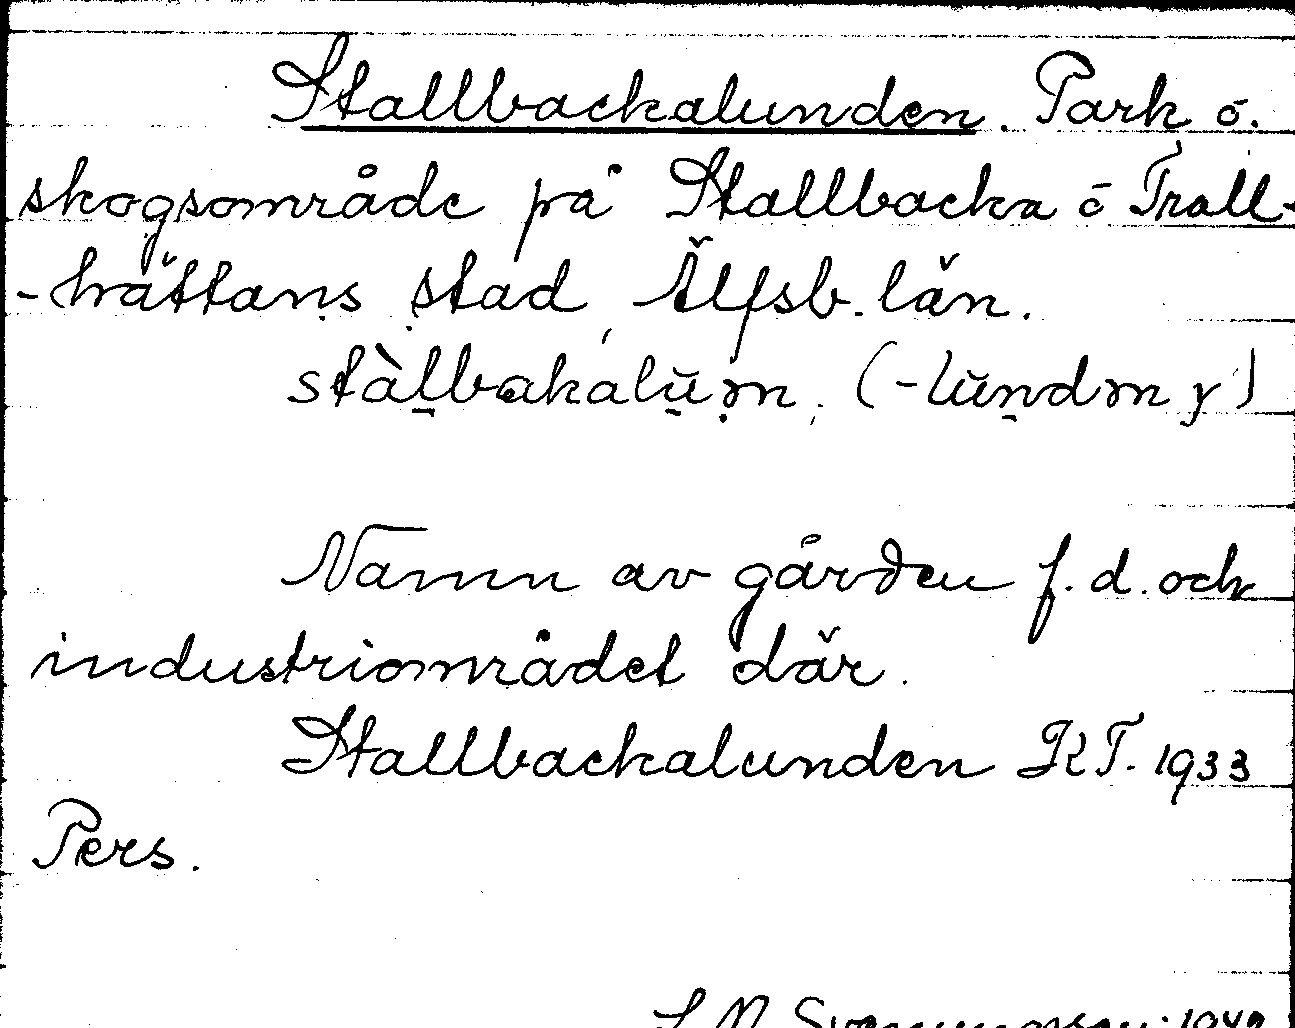 Stallbackalunden. Park o.
skogsområde på Stallbacka i Troll-
-hättans stad, Älfsb. län.
stàlbakalŭm, (-lŭndm y)

Namn av gården f.d. och
industriområdet där.
Stallbackalunden KT. 1933
Pers.